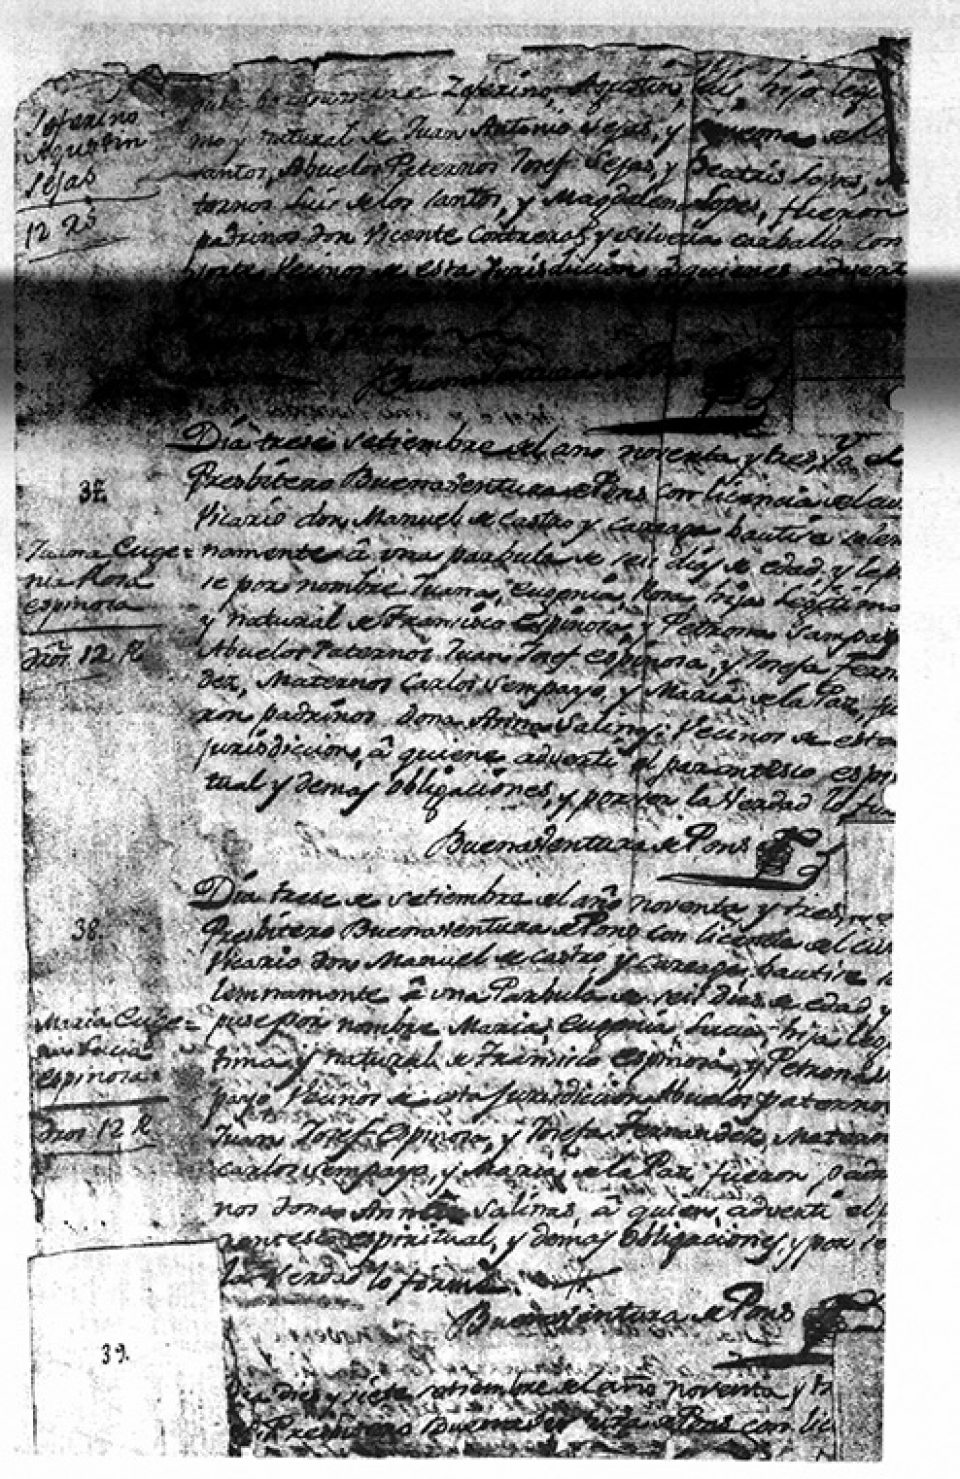 Zeferino
Agustin
Sejas
12 Rs
Zeferino, Agustin, Luis hijo legiti
mo y natural de Juan Antonio Sejas, y de los
santos, Abuelos Paternos Josef Sejas, y Beatris Lopes, 
ternos Luis de los santos, y Magdalena Lopes, fueron
padrinos don Vicente Contreras y silveria caraballo con
sorte, Vecinos de esta Jurisdicion, a quienes advertí
Buenaventura de Pons
37.
Juana Euge=
nia Rosa
espinosa
dros. 12 R
Dia trese setiembre del año noventa y tres, Yo el
Presbítero Buenaventura de Pons con licencia del cu
Vicario don Manuel de Castro y careaga bautise solem
namente â una parbula de seis dias de edad, y le pu
se por nombre Juana, Eugenia, Rosa hija Legitima
y natural de Francisco Espinosa, y Petrona Sampayo
Abuelos Paternos Juan Josef espinosa, y Josefa Fernan
dez, Maternos Carlos Sempayo, y Maria de la Paz, fue
ron padrinos dona Anna Salinas Vecinos de esta
jurisdicion, â quiene advertí el parentesco espiri
tual y demas obligaciones, y por ser la Verdad lo firme
Buenaventura de Pons
38.
María Euge=
nia Lucia
espinosa
dros 12 R
Dia trese de setiembre del año noventa y tres,
Presbitero Buenaventura de Pons con licencia del cur
Vicario Don Manuel de Castro y careaga, bautise so
lemnamente â una Parbula de seis dias de edad y
puse por nombre Maria, Eugenia, Lucia, hija Legi
tima y natural de Francisco espinosa, y Petrona Sem
payo Vecinos de esta Jurisdicion Abuelos paternos
Juan Josef Espinosa, y Josefa Fernandez Matern
carlos Sempayo, y Maria de la Paz fueron padri
nos dona Anna Salinas, â quien, advertí el p
rentesco espiritual, y demas obligaciones, y por se
la Verdad lo firme.
Buenaventura de Pons
39.
Dia dies y siete setiembre del año noventa y tr
el Presbitero Buenaventura de Pons con lic